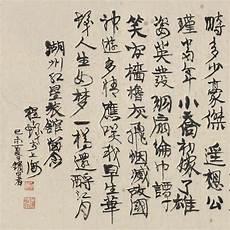 時多少豪傑遙想公
瑾當年小喬初嫁了雄
姿英發羽扇綸巾談
笑間檣櫓灰飛烟滅故國
神遊多情應笑我早生華
髮人生如夢一樽還酹江月
湖州紅星旅館留存
程於上海
己未夏